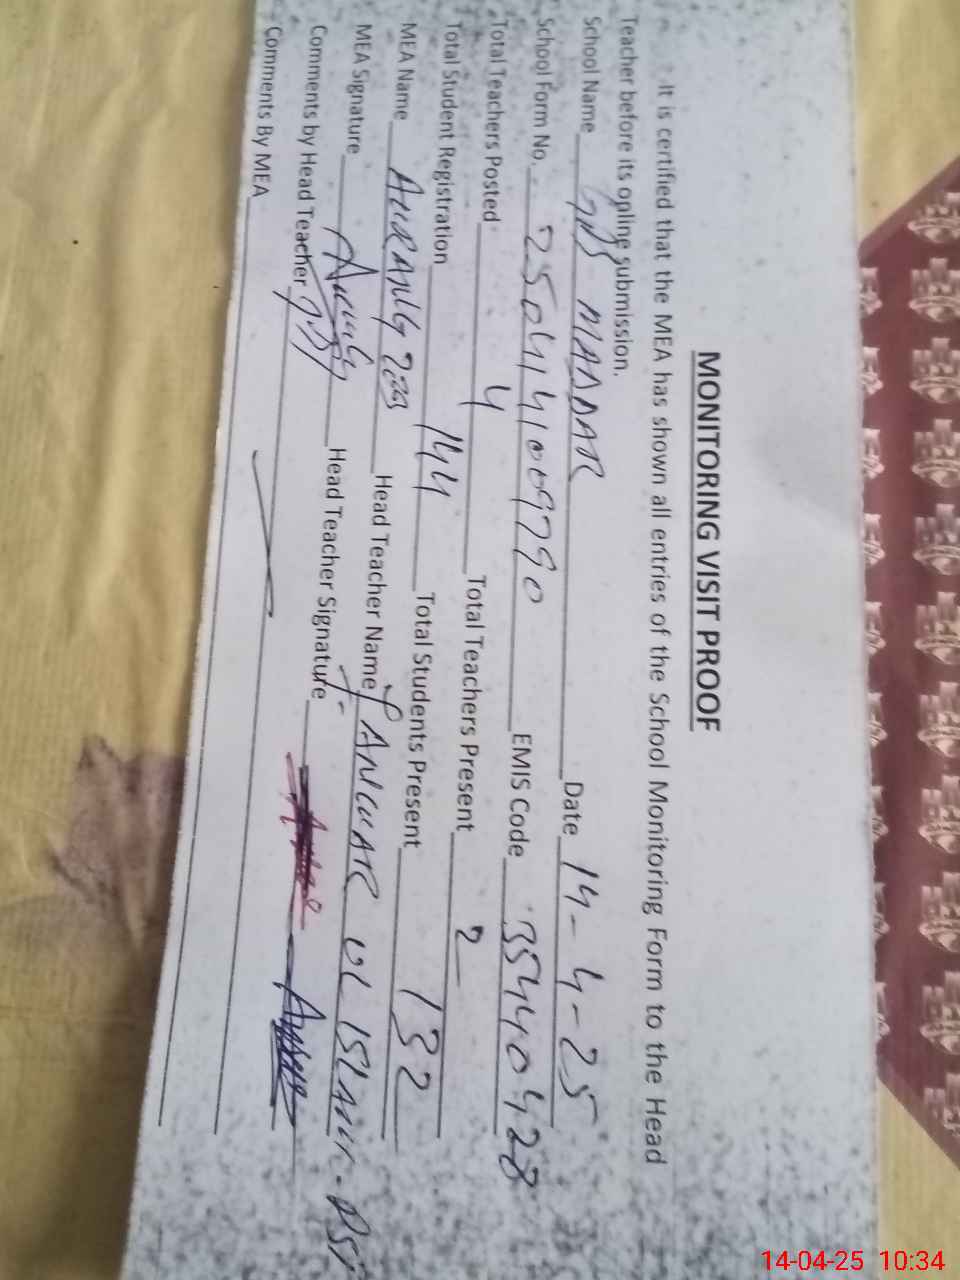 MONITORING VISIT PROOF
It is certified that the MEA has shown all entries of the School Monitoring Form to the Head
Teacher before its online submission.
School Name MADDAR Date 14-4-25
School Form No. 2504141009790 EMIS Code 35440428
Total Teachers Posted 4 Total Teachers Present 2
Total Student Registration 144 Total Students Present 132
MEA Name Head Teacher Name ANWAR UL ISLAM
MEA Signature Head Teacher Signature
Comments by Head Teacher
Comments By MEA
14-04-25 10:34